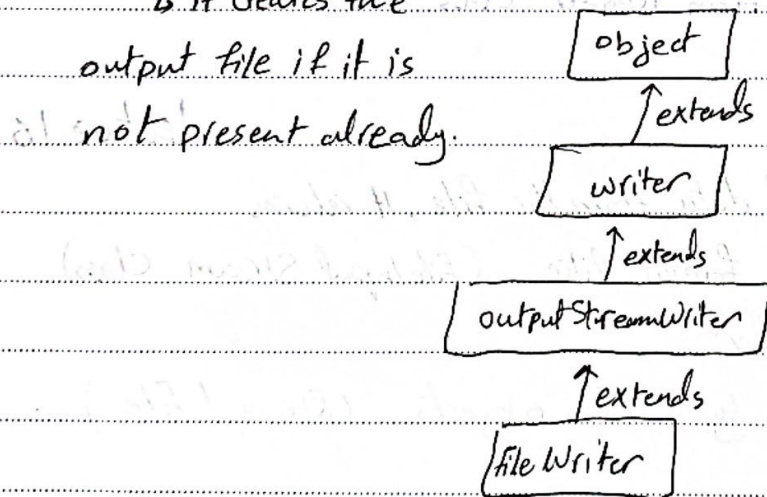 it creates the
output file if it is
not present already.
object
extends
writer
extends
outputStreamWriter
extends
fileWriter